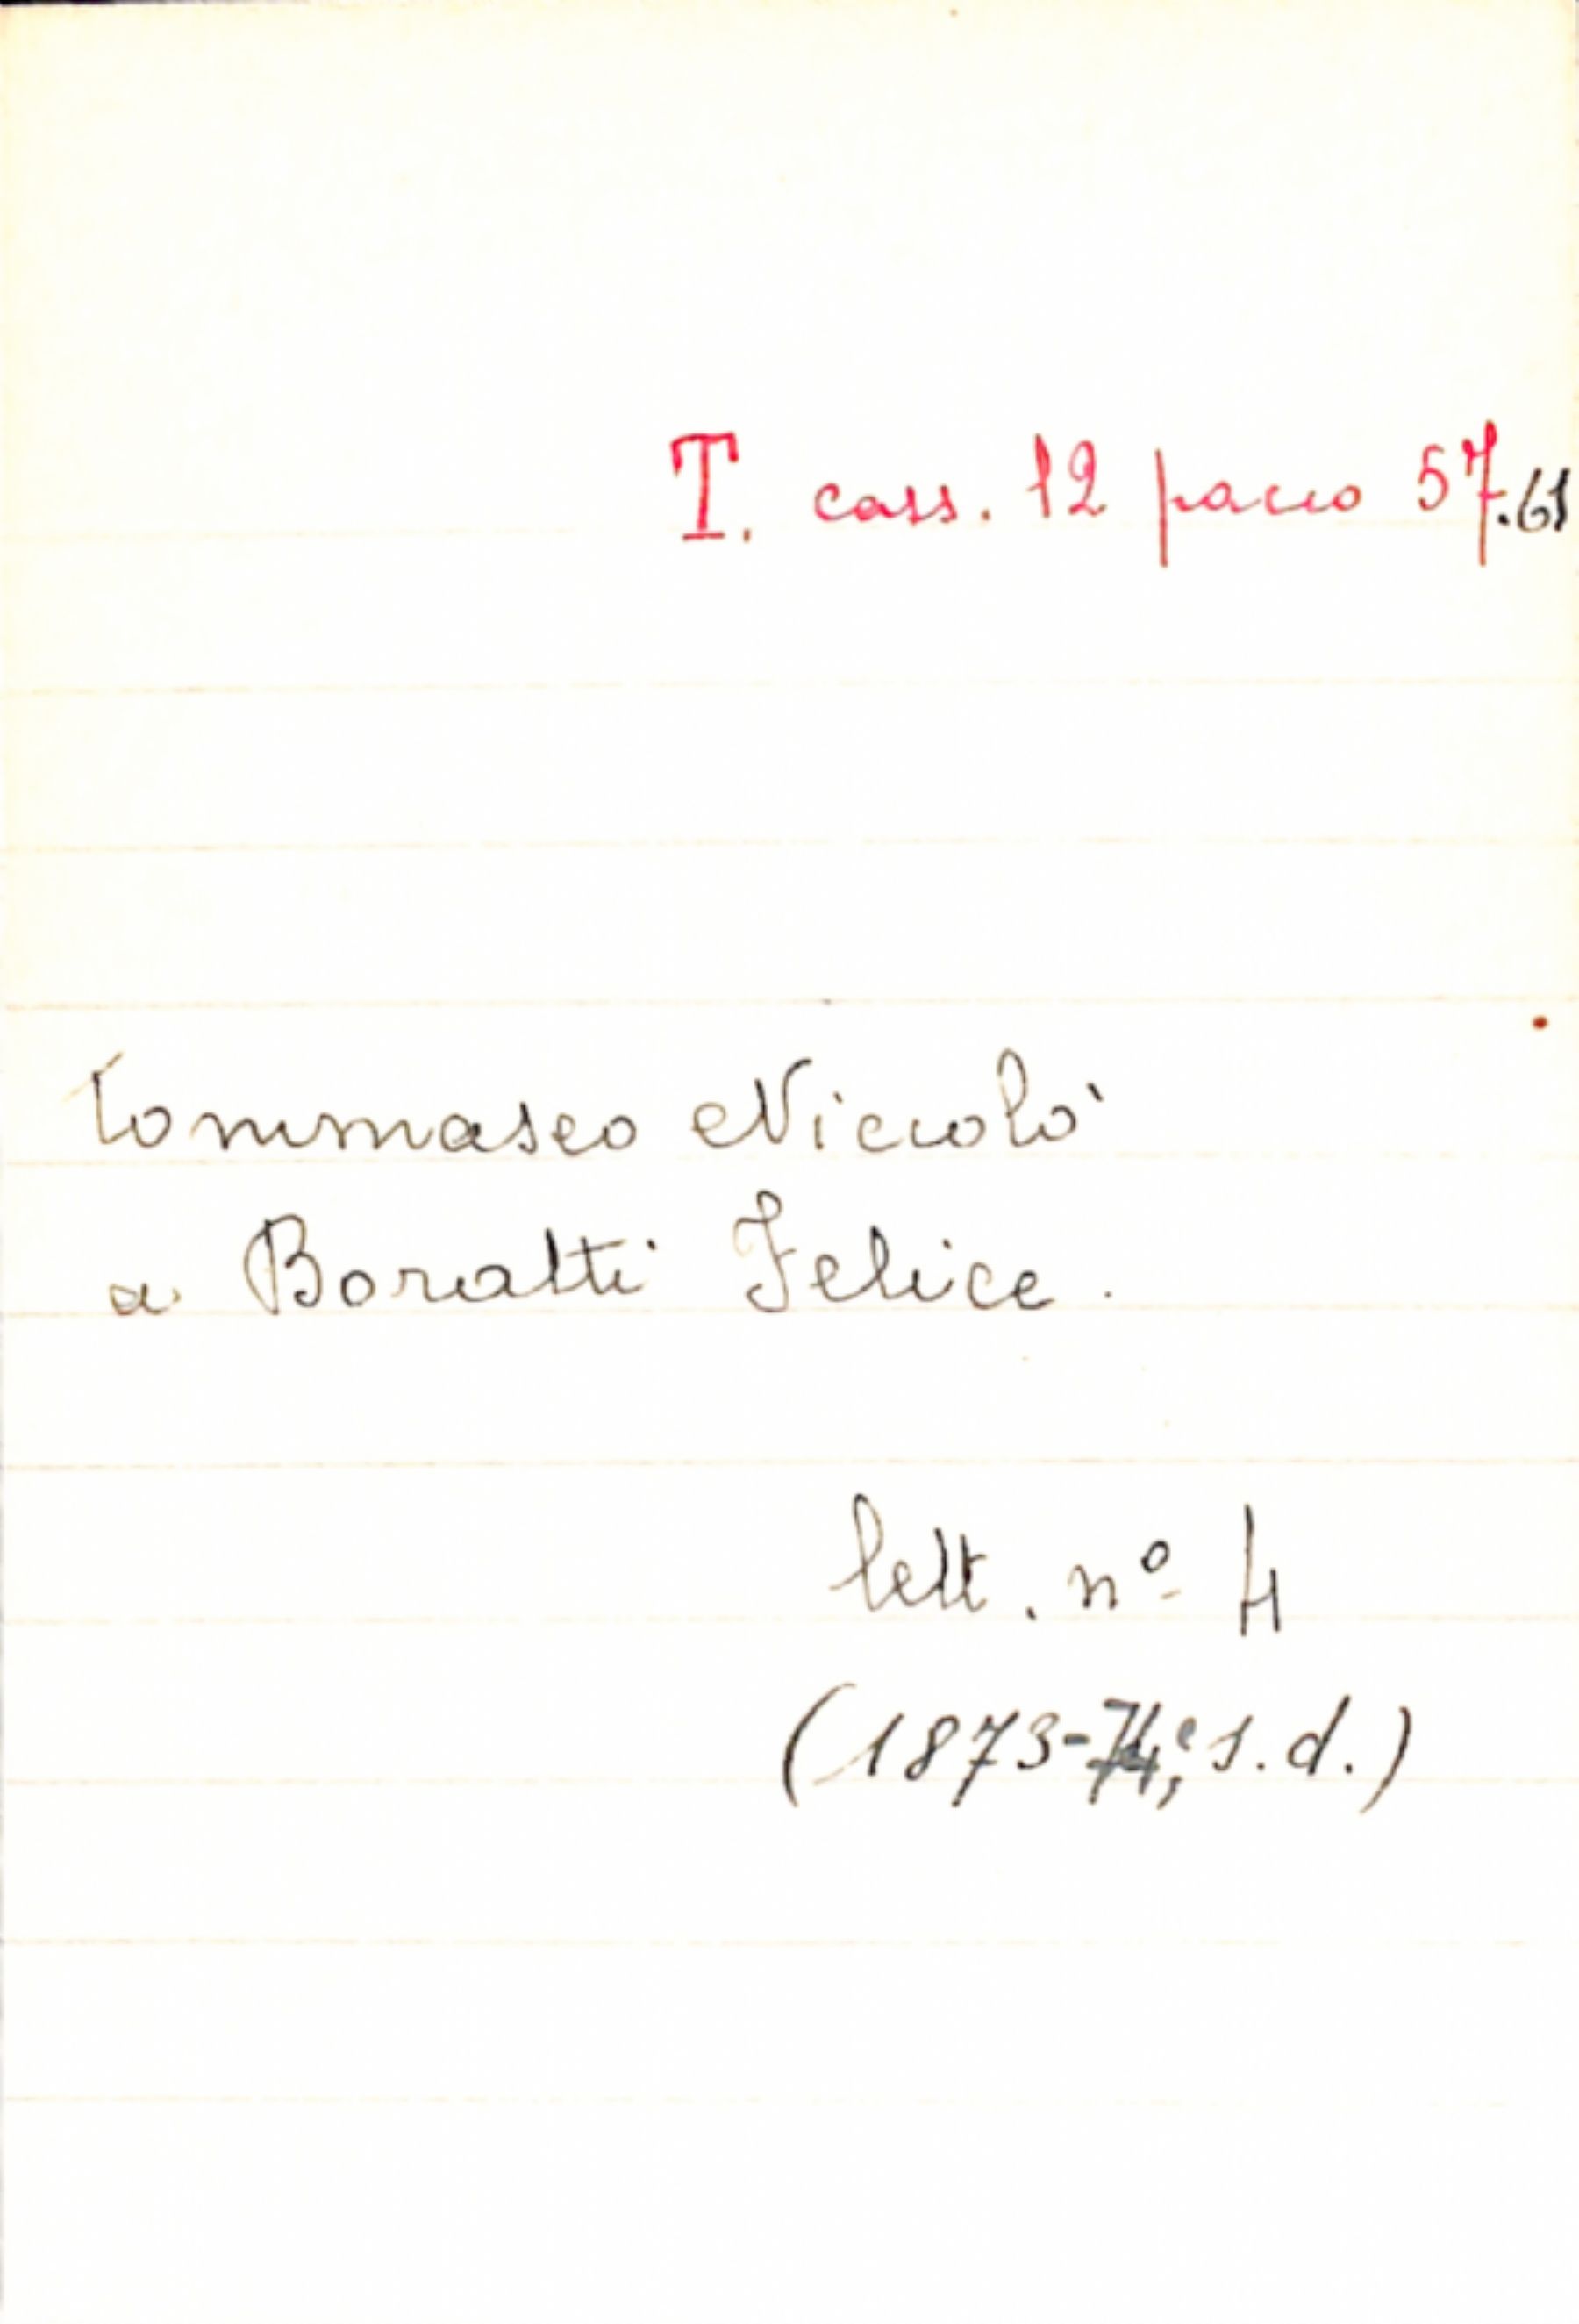 T. cass. 12 pacco 57.61
Tommaseo Niccolò
a Boratti Felice.
lett. nº 4
(1873-74, e s.d.)